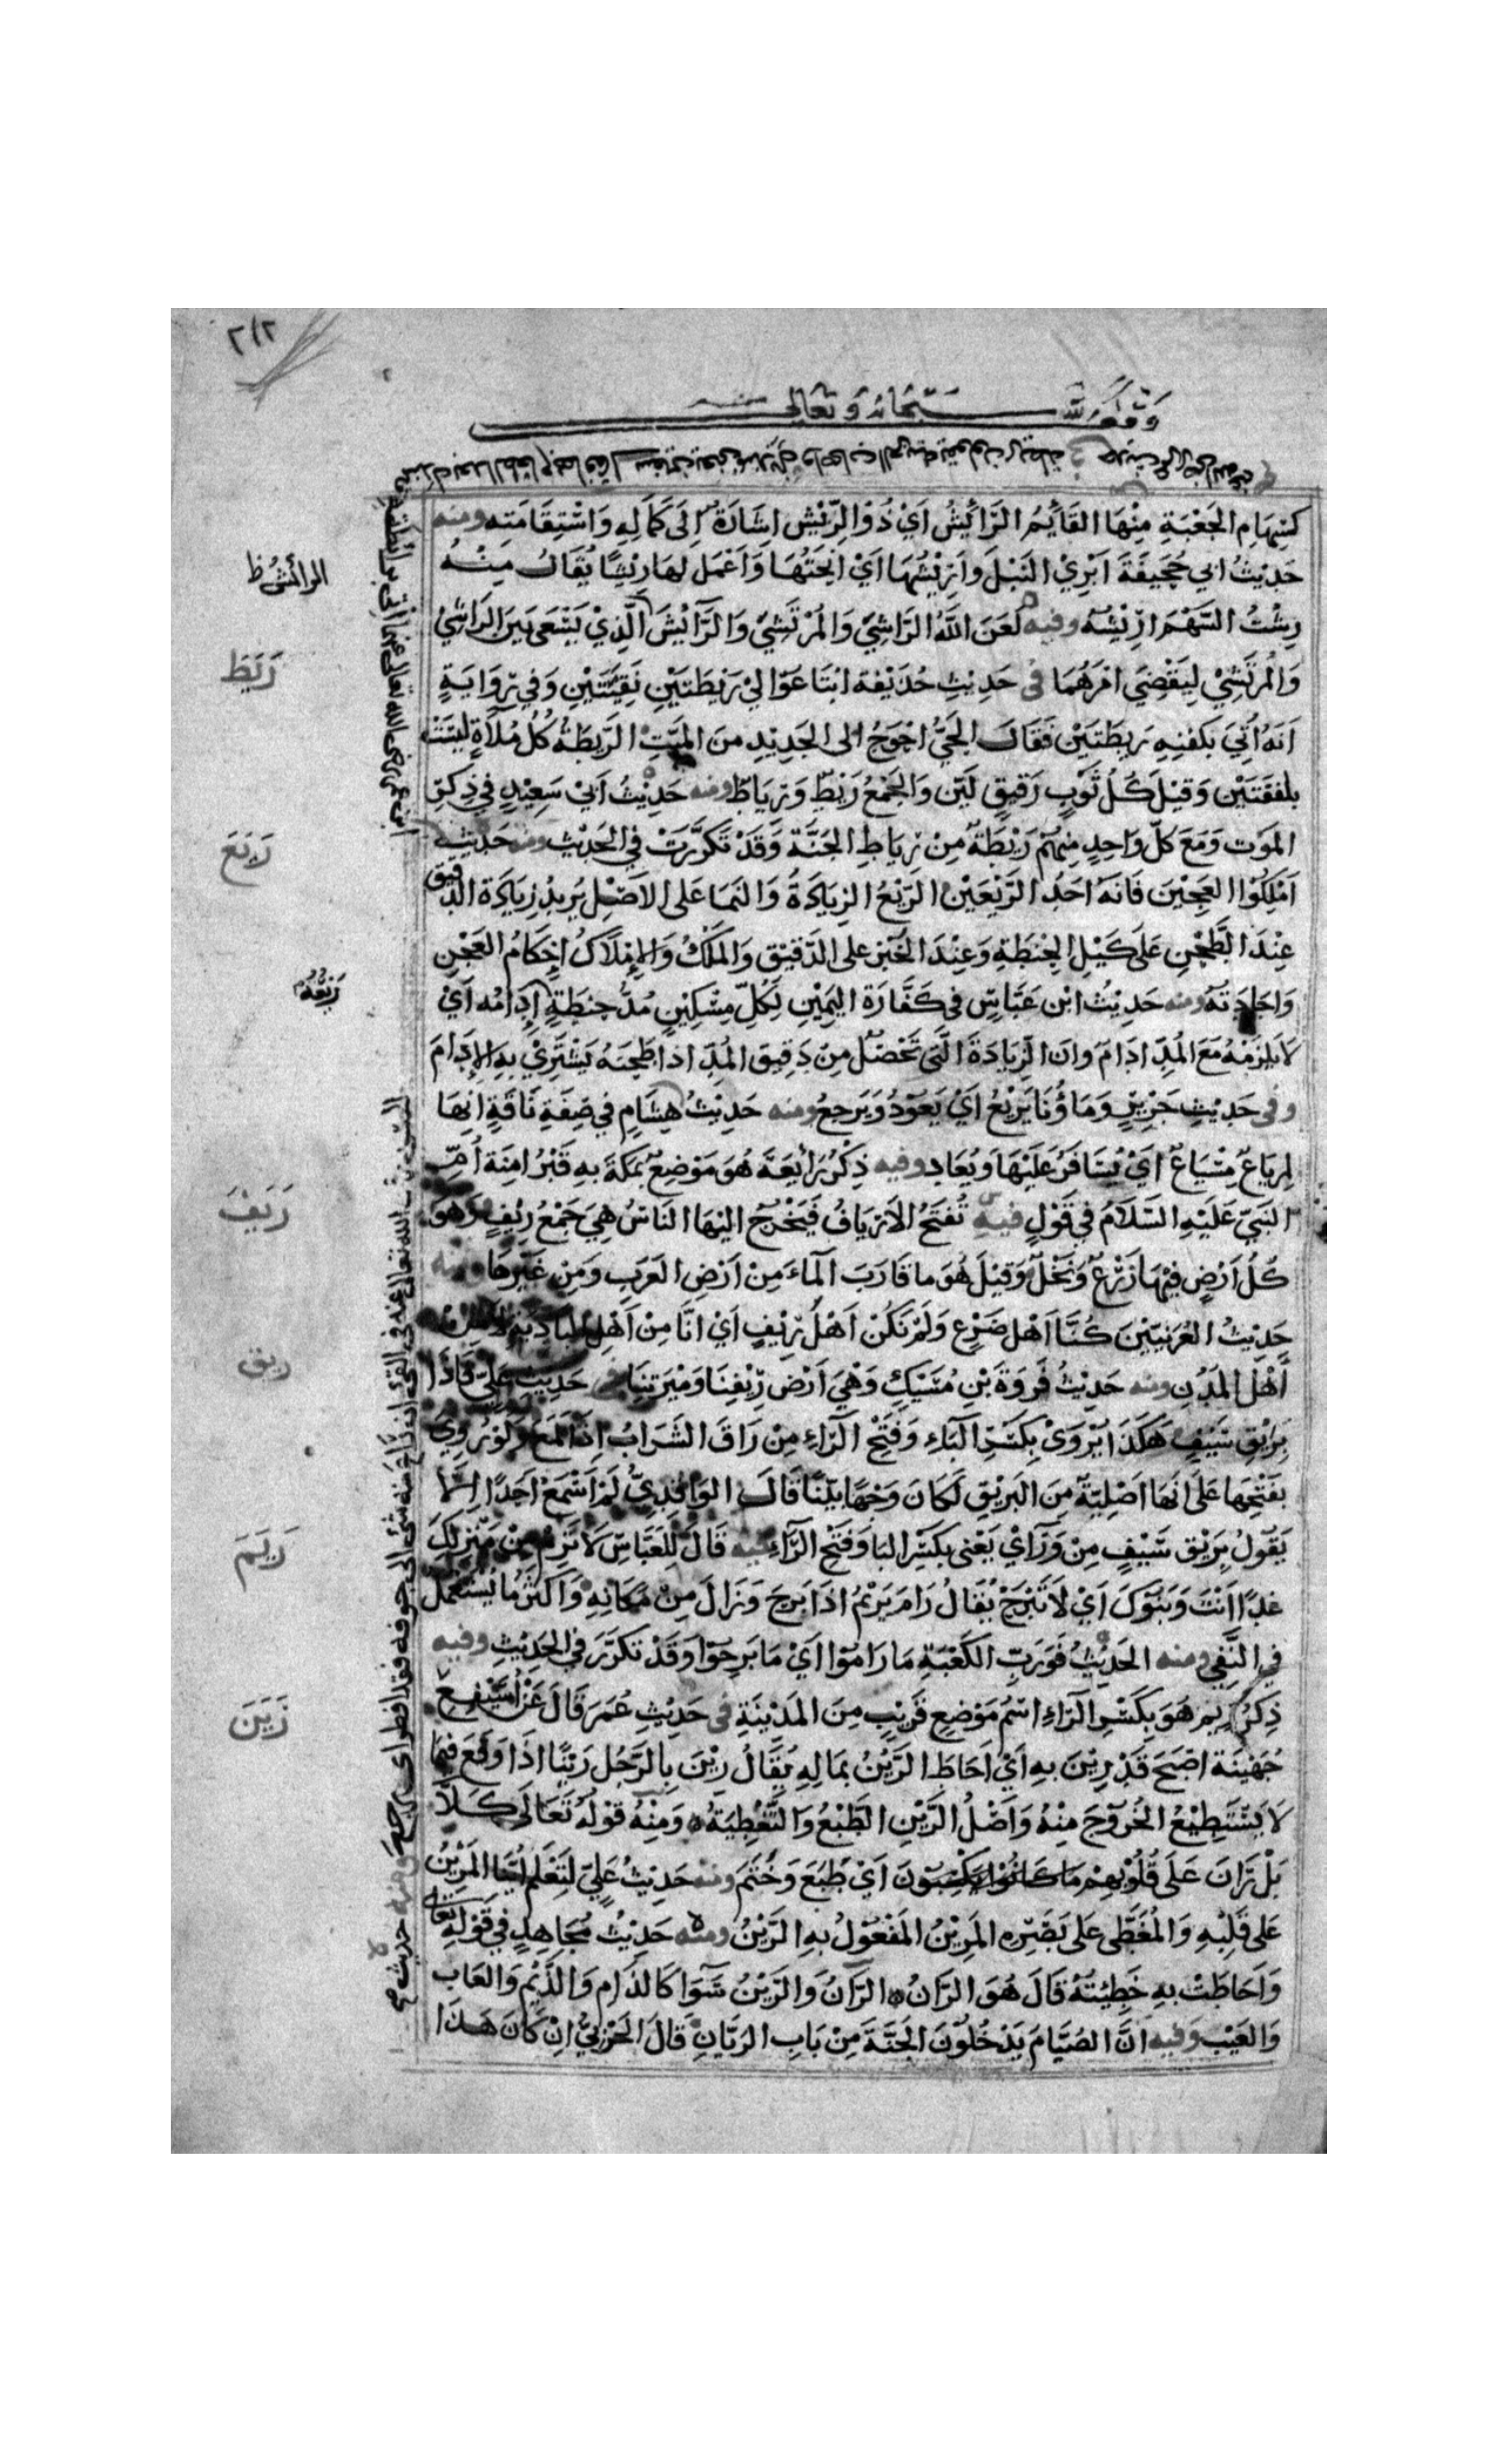 ٢١٢
وقف لله سبحانه وتعالى
كسِهَامِ الجَعْبَةِ مِنْهَا القَائِمُ الرَّائِشُ اَيْ ذُوْ الرِّيْشِ اِشَارَةٌ اِلَى كَمَالِهِ وَاسْتِقَامَتِهِ ومنه
حَدِيْثُ ابي جُحَيفَةَ اَبْرِيْ النَبْلَ وَاَرِيْشُهَا اَيْ اَنْحَتُهَا وَاَعْمَل لهَا رِيْشًا يُقَالُ مِنْهُ
رِشْتُ السَّهْمَ اَرِيْشُهُ وفيه لَعَنَ اللَّهُ الرَّاشِيَ وَالمُرْتَشِيَ وَالرَّائِشَ الَّذِيْ يَسْعَى بَيْنَ الرَاشِيْ
وَالمُرتَشِيْ لِيَقْضِيَ اَمْرَهُمَا في حَدِيثِ حُذَيْفَة ابْتَاعُوْا لِيْ رَيْطَتَيْنِ نَقِيَّتَيْنِ وَفي رِوَايَةٍ
اَنَهُ اُتِيَ بكفنِهِ رَيطَتَيْن فَقَالَ الحَيُّ اَحْوَجُ الى الجَدِيْدِ منَ المَيّتِ الرَّيطَةُ كُل مُلَآةٍ ليْسَتْ
بلفقَتَيْن وَقِيْلَ كُلُ ثَوْبٍ رَقيقٍ لَيّن وَالجَمْعُ رَيْطٌ وَرِيَاطٌ ومنه حَدِيْثُ اَبيْ سَعِيْدٍ في ذِكرِ
المَوْت وَمَعَ كلّ وَاحِدٍ مِنهُمْ رَيْطَةٌ مِنْ رِيَاطِ الجَنَّة وَقَدْ تَكَرَّرَتْ في الحَدِيْث ومنه حَدِيْث
اَمْلِكُوْا العَجِيْنَ فَانَهُ اَحَدُ الرَّيْعَيْنِ الرَّيْعُ الزيَادَةُ وَالنَمَا عَلى الاَصْلِ يُرِيدُ زِيَادَة الدَّقيق
عِنْدَ الطَّحْنِ عَلَى كَيْلِ الحِنْطَةِ وَعِنْدَ الخَبْزِ على الدَّقيْق وَالمَلكُ وَالاِمْلَاكُ اِحْكَامُ العَجْنِ
وَاجَادَتهُ ومنه حَدِيْثُ ابْن عَبَّاسٍ في كَفَّارَة اليَمِيْنِ لِكُلِّ مِسْكِيْنٍ مُدُّ حِنطَةٍ اِدَامُه اَيْ
لَا يلزمُهُ مَعَ المُدِّ ادَامٌ وَان الزِّيَادَةَ الّتى تَحْصُلُ مِنْ دَقِيق المُدِّ اذا طَحَنَهُ يَشْتَرِيْ بهِ الاِدَامَ
وفي حَدِيْثِ جَرِيْرٍ وَمَاؤُنَا يَرِيْعُ اَيْ يَعُوْدُ وَيَرجعُ ومنه حَدِيْثُ هِشَامٍ في صِفَةِ نَاقَةٍ انِهَا
لمِرْيَاعٌ مِسْيَاعٌ اَيْ يُسَافَرُ عَلَيْهَا وَيُعَاد وفيه ذِكْرُ رَائِعَةَ هُوَ مَوْضِعٌ بمَكَةَ بهِ قَبْرُ امِنَة اُمِّ
النَبيّ عَلَيْهِ السَّلَامُ في قَوْلٍ فيه تُفتَحُ الاَرْيَافُ فَيَخْرُجُ اليْهَا النَاسُ هِيَ جَمْعُ رِيْفٍ وَهُوَ
كُلُ اَرْضٍ فيْهَا زَرْعٌ وَنَخْلٌ وَقيْلَ هُوَ مَا قَارَبَ المَاءَ مِنْ اَرْضِ العَرَبِ وَمِنْ غَيْرِهَا ومنه
حَدِيْثُ العُرَنِيّيْنَ كُنَّا اَهْلَ ضَرْعٍ وَلَمْ نَكُنْ اَهْلَ رِيْفٍ اَيْ انَّا مِنْ اَهْلِ البَادِيَةِ لَا مِنْ
اَهْلِ المُدُنِ ومنه حَدِيْثُ فَرْوَةَ بْنِ مُسَيْكٍ وَهْيَ اَرْضُ رِيْفِنَا وَمِيْرَتِنَا في حَدِيْث عَلِيٍّ فَاذَا
بِرَيْقِ سَيْفٍ هَكَذَا يُرْوَىْ بكَسْرِ البَاءِ وَفَتْحِ الرَّاءِ مِنْ رَاقَ الشَرَابُ اِذَا لَمَعَ وَلَوْ رُوِيَ
بفَتْحِهَا عَلَى انهَا اَصْلِيَّةٌ مِنَ البَرِيْقِ لَكَانَ وَجْهًا بَيِّنًا قَالَ الوَاقِدِيُّ لَمْ اَسْمَعْ اَحَدًا اِلَّا
يَقُوْلُ بِرَيْق سَيْفٍ مِنْ وَرَآيْ يَعْنى بكَسْرِ البَا وَفَتْحِ الرَّاءِ فيه قَالَ لِلعَبَّاسِ لَا تَرِمْ مِنْ مَنْزِلِكَ
غَدًا اَنْتَ وَبَنُوْكَ اَيْ لَا تَبْرَحْ يُقَالُ رَامَ يَرِيْمُ اذَا بَرِحَ وَزَالَ مِنْ مَكَانِهِ وَاَكثَرُ مَا يُستَعْمَلُ
في النَّفي ومنه الحَدِيْثُ فَوَرَبِّ الكَعْبَةِ مَا رَامُوْا اَيْ مَا بَرِحُوْا وَقَدْ تكَرَّرَ في الحَدِيْثِ وفيه
ذِكرُ رِيْم هُوَ بكَسْرِ الرَّاءِ اسْمُ مَوْضِعٍ قَرِيْبٍ مِنَ المَدِيْنَةِ في حَدِيْثِ عُمَرَ قَالَ عَنْ اُسَيْفِعِ
جُهَيْنَة اَصْبَحَ قَدْ رِيْنَ بهِ اَيْ اَحَاطَ الدَّيْنُ بمَالِهِ يُقَالُ رِيْنَ بِالرَّجُل رَيْنًا اذَا وَقَعَ فيْمَا
لَا يَسْتَطِيْعُ الخُرُوْجَ مِنْهُ وَاَصْلُ الرَّيْنِ الطَّبْعُ وَالتَّغْطِيَةُ وَمِنْهُ قَوْلُهُ تَعَالَى كَلَّا
بَلْ رَانَ عَلَى قُلُوْبِهِمْ مَا كَانُوْا يَكْسِبُوْنَ اَيْ طَبَعَ وَخَتَمَ ومنه حَدِيْثُ عَلِيّ لِتَعْلَم اَيُّنَا المَرِيْنُ
عَلى قَلْبِهِ وَالمُغَطَّى عَلى بَصَرِه المَرِيْنُ المَفْعُوْلُ بهِ الرَّيْنُ ومنه حَدِيْثُ مُجَاهِدٍ في قَوْلِهِ تعالى
وَاَحَاطَتْ بهِ خَطِيْئَتُهُ قَالَ هُوَ الرَانُ الرَّانُ وَالرَّيْنُ سَوَا كَالذَامِ وَالذَّيْمِ وَالعَاب
وَالعَيْب وَفيه انَّ الصُيَّامَ يَدْخُلُوْنَ الجَنَّةَ مِنْ بَابِ الرَيَّانِ قَالَ الحَرْبيُّ اِنْ كَانَ هَذَا
الرائش ظ
رَيَطَ
رَيَعَ
رَيَفَ
ريق
رَيَمَ
رَيَنَ